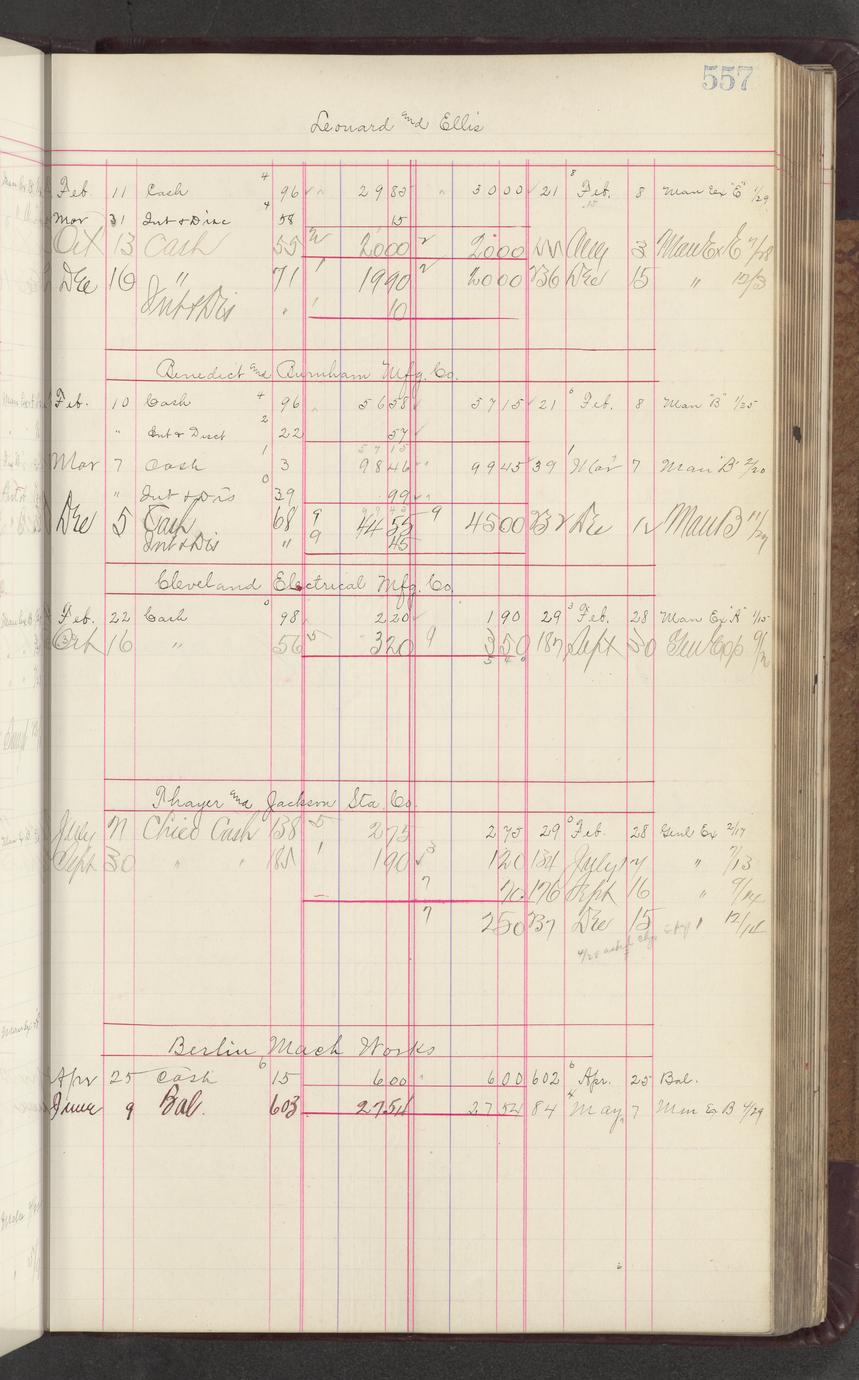 557
Leonard and Ellis
Feb. 11 Cash 4 96 29 85 30 00 21 8 Feb. 8 Man Ex "E" 1/29
Mar 31 Int & Disc 4 58 15
Oct 13 Cash 55 20 00 20 00 Aug 3 Man Ex E 7/28
Dec 10 " 71 19 90 20 00 236 Dec 15 " 12/3
Int & Dis " 10
Benedict and Burnham Mfg. Co.
Feb. 10 Cash 4 96 56 58 57 15 21 6 Feb. 8 Man "B" 1/25
" Int & Disct 2 22 57
57 15
Mar 7 Cash 1 3 98 46 99 45 39 1 Mar 7 Man "B" 2/20
" Int & Dis 0 39 99
Dec 5 Cash 68 9 44 55 9 45 00 232 Dec 12 Man B 11/29
Int & Dis " 9 45
Cleveland Electrical Mfg. Co.
Feb. 22 Cash 0 98 2 20 1 90 29 3 Feb. 28 Man Ex "A" 1/15
Oct 16 " 56 5 3 20 9 3 50 187 Sept 30
5 40
Thayer and Jackson Sta. Co.
July Cash 138 5 2 75 2 75 29 0 Feb. 28 Genl Ex 2/17
Sept 30 " " 1 1 90 3 1 20 134 July 17 " 7/13
7 70 176 Sept 16 " 9/14
7 2 50 237 Dec 15 " 12/14
Berlin Mach Works
Apr 25 Cash 6 15 6 00 6 00 602 6 Apr. 25 Bal.
June 9 Bal. 603 27 54 27 54 84 4 May 7 Man Ex B 4/29